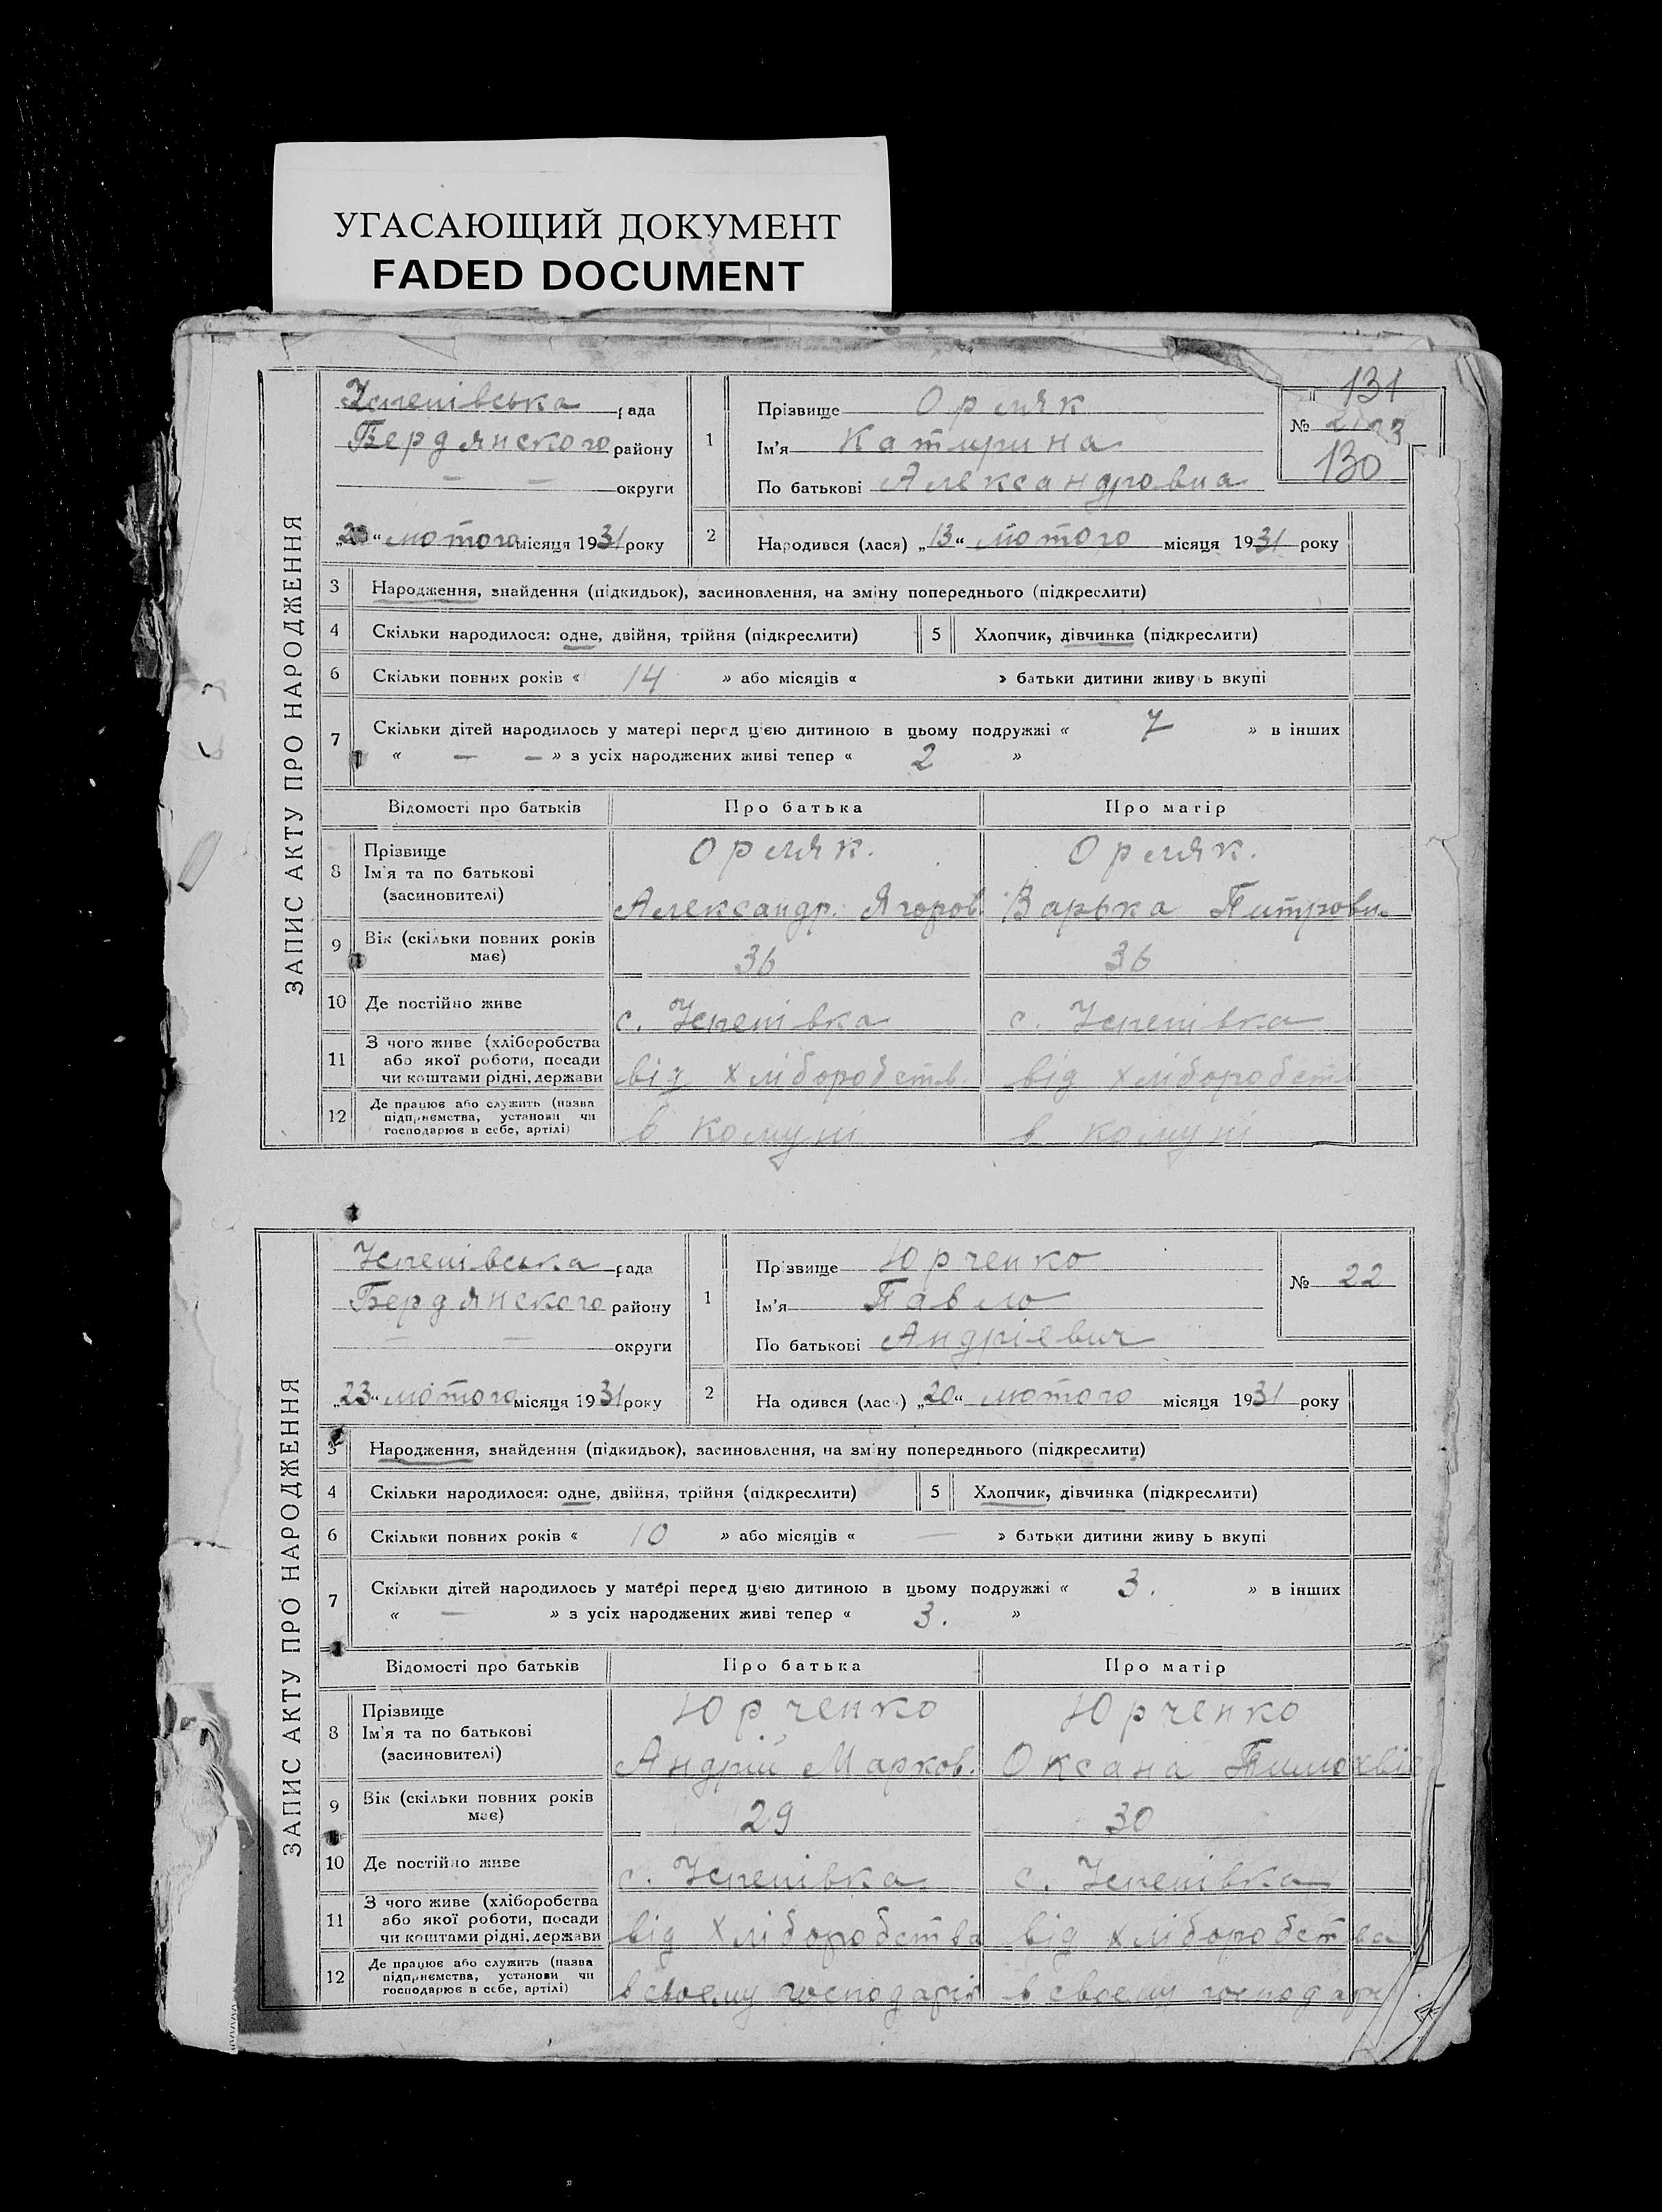 УГАСАЮЩИЙ ДОКУМЕНТ
FADED DOCUMENT
131
130
ЗАПИС АКТУ ПРО НАРОДЖЕННЯ
Успенівська рада
Бердянского району
— — округи
лютого місяця 1931 року
1
Прізвище Орляк
Ім'я Катирина
По батькові Александровна
№
2
Народився (лася) „13“ лютого місяця 1931 року
3 Народження, знайдення (підкидьок), засиновлення, на зміну попереднього (підкреслити)
4 Скільки народилося: одне, двійня, трійня (підкреслити) 5 Хлопчик, дівчинка (підкреслити)
6 Скільки повних років « 14 » або місяців « » батьки дитини живу ь вкупі
7 Скільки дітей народилось у матері перед цією дитиною в цьому подружжі « 7 » в інших
« — — » з усіх народжених живі тепер « 2 »
Відомості про батьків Про батька Про матір
8 Прізвище Орляк. Орляк.
Ім'я та по батькові
(засиновителі) Александр. Ягоров. Варька Питровн.
9 Вік (скільки повних років має) 36 36
10 Де постійно живе с. Успенівка с. Успенівка
11 З чого живе (хліборобства
або якої роботи, посади
чи коштами рідні, держави від хліборобств. від хліборобств
12 Де працює або служить (назва
підприємства, установи чи
господарює в себе, артілі) в комуні в комуні
ЗАПИС АКТУ ПРО НАРОДЖЕННЯ
Успенівська рада
Бердянского району
— — округи
„23“ лютого місяця 1931 року
1
Прізвище Юрченко
Ім'я Павло
По батькові Андріевич
№ 22
2
На одився (лас ) „20“ лютого місяця 1931 року
3 Народження, знайдення (підкидьок), засиновлення, на зміну попереднього (підкреслити)
4 Скільки народилося: одне, двійня, трійня (підкреслити) 5 Хлопчик, дівчинка (підкреслити)
6 Скільки повних років « 10 » або місяців « — » батьки дитини живу ь вкупі
7 Скільки дітей народилось у матері перед цією дитиною в цьому подружжі « 3. » в інших
« — » з усіх народжених живі тепер « 3. »
Відомості про батьків Про батька Про матір
8 Прізвище Юрченко Юрченко
Ім'я та по батькові
(засиновителі) Андрій Марков. Оксана
9 Вік (скільки повних років має) 29 30
10 Де постійно живе с. Успенівка с. Успенівка
11 З чого живе (хліборобства
або якої роботи, посади
чи коштами рідні, держави від хліборобства від хліборобства
12 Де працює або служить (назва
підприємства, установи чи
господарює в себе, артілі) в своєму в своєму